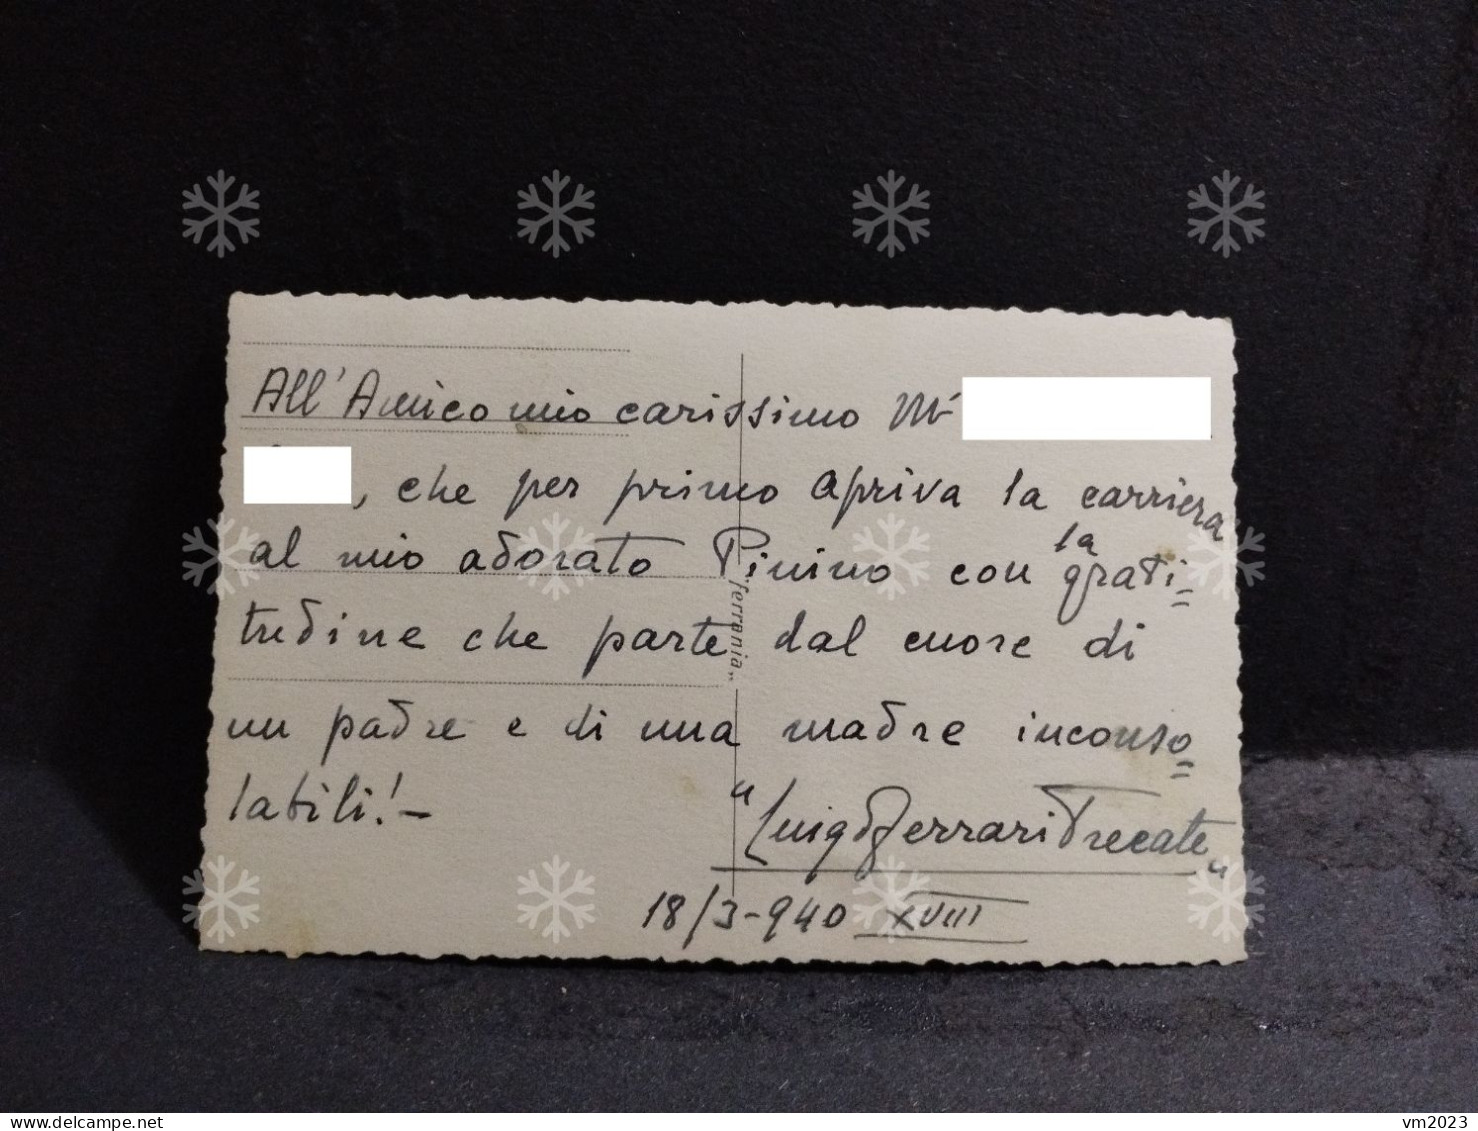 All'Amico mio carissimo Mº
, che per primo apriva la carriera
al mio adorato Pinino con la grati=
tudine che parte dal cuore di
un padre e di una madre inconso=
labili!-
"Luigi Ferrari Trecate"
18/3-940 XVIII
"ferrania"
vm2023